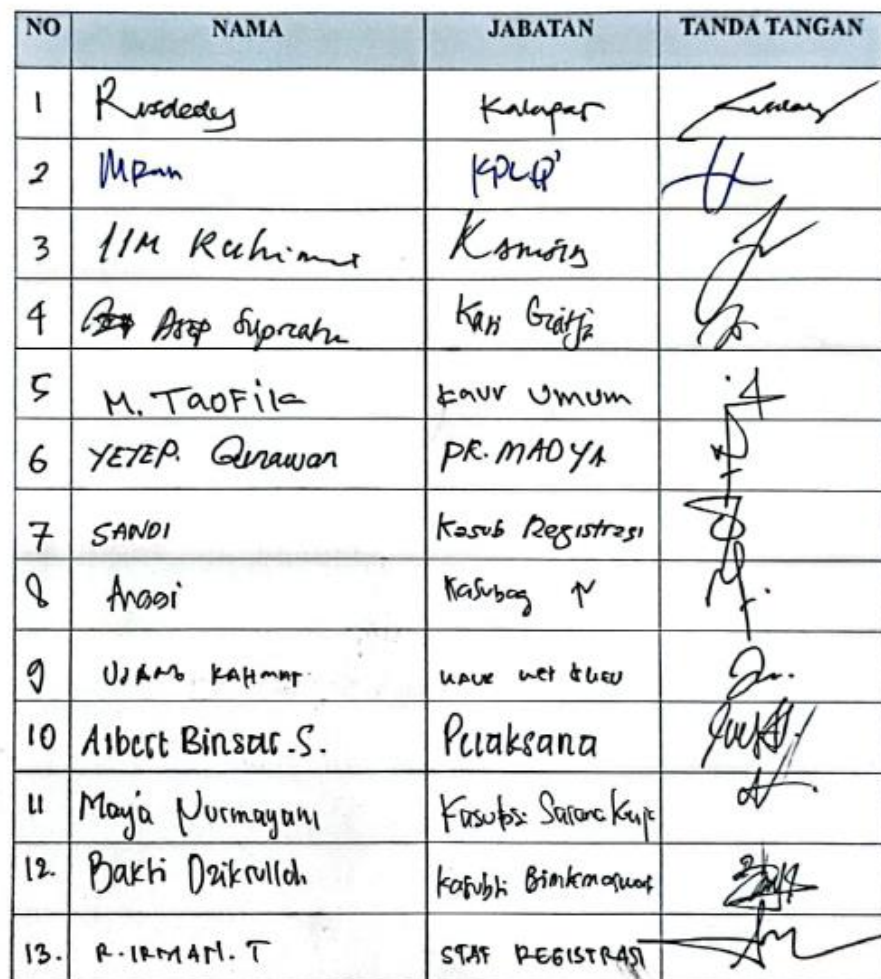 NO NAMA JABATAN TANDA TANGAN
1 Rusdedy Kalapas
2 KPLP
3 IIM Rahima
4 Asep Supriatn Kasi Giatja
5 M. TAOFIK Kaur Umum
6 YETEP. Gunawan PR. MADYA
7 SANDI Kasub Registrasi
8 Anggi Kasubag
9 UJANG RAHMAT KAUR
10 Albert Binsar. S. Pelaksana
11 Maya Nurmayani Kasubsi Sarana Kerja
12. Bakti Dzikrulloh Kasubsi Bimkemaswat
13. R. IRMAN. T STAF REGISTRASI